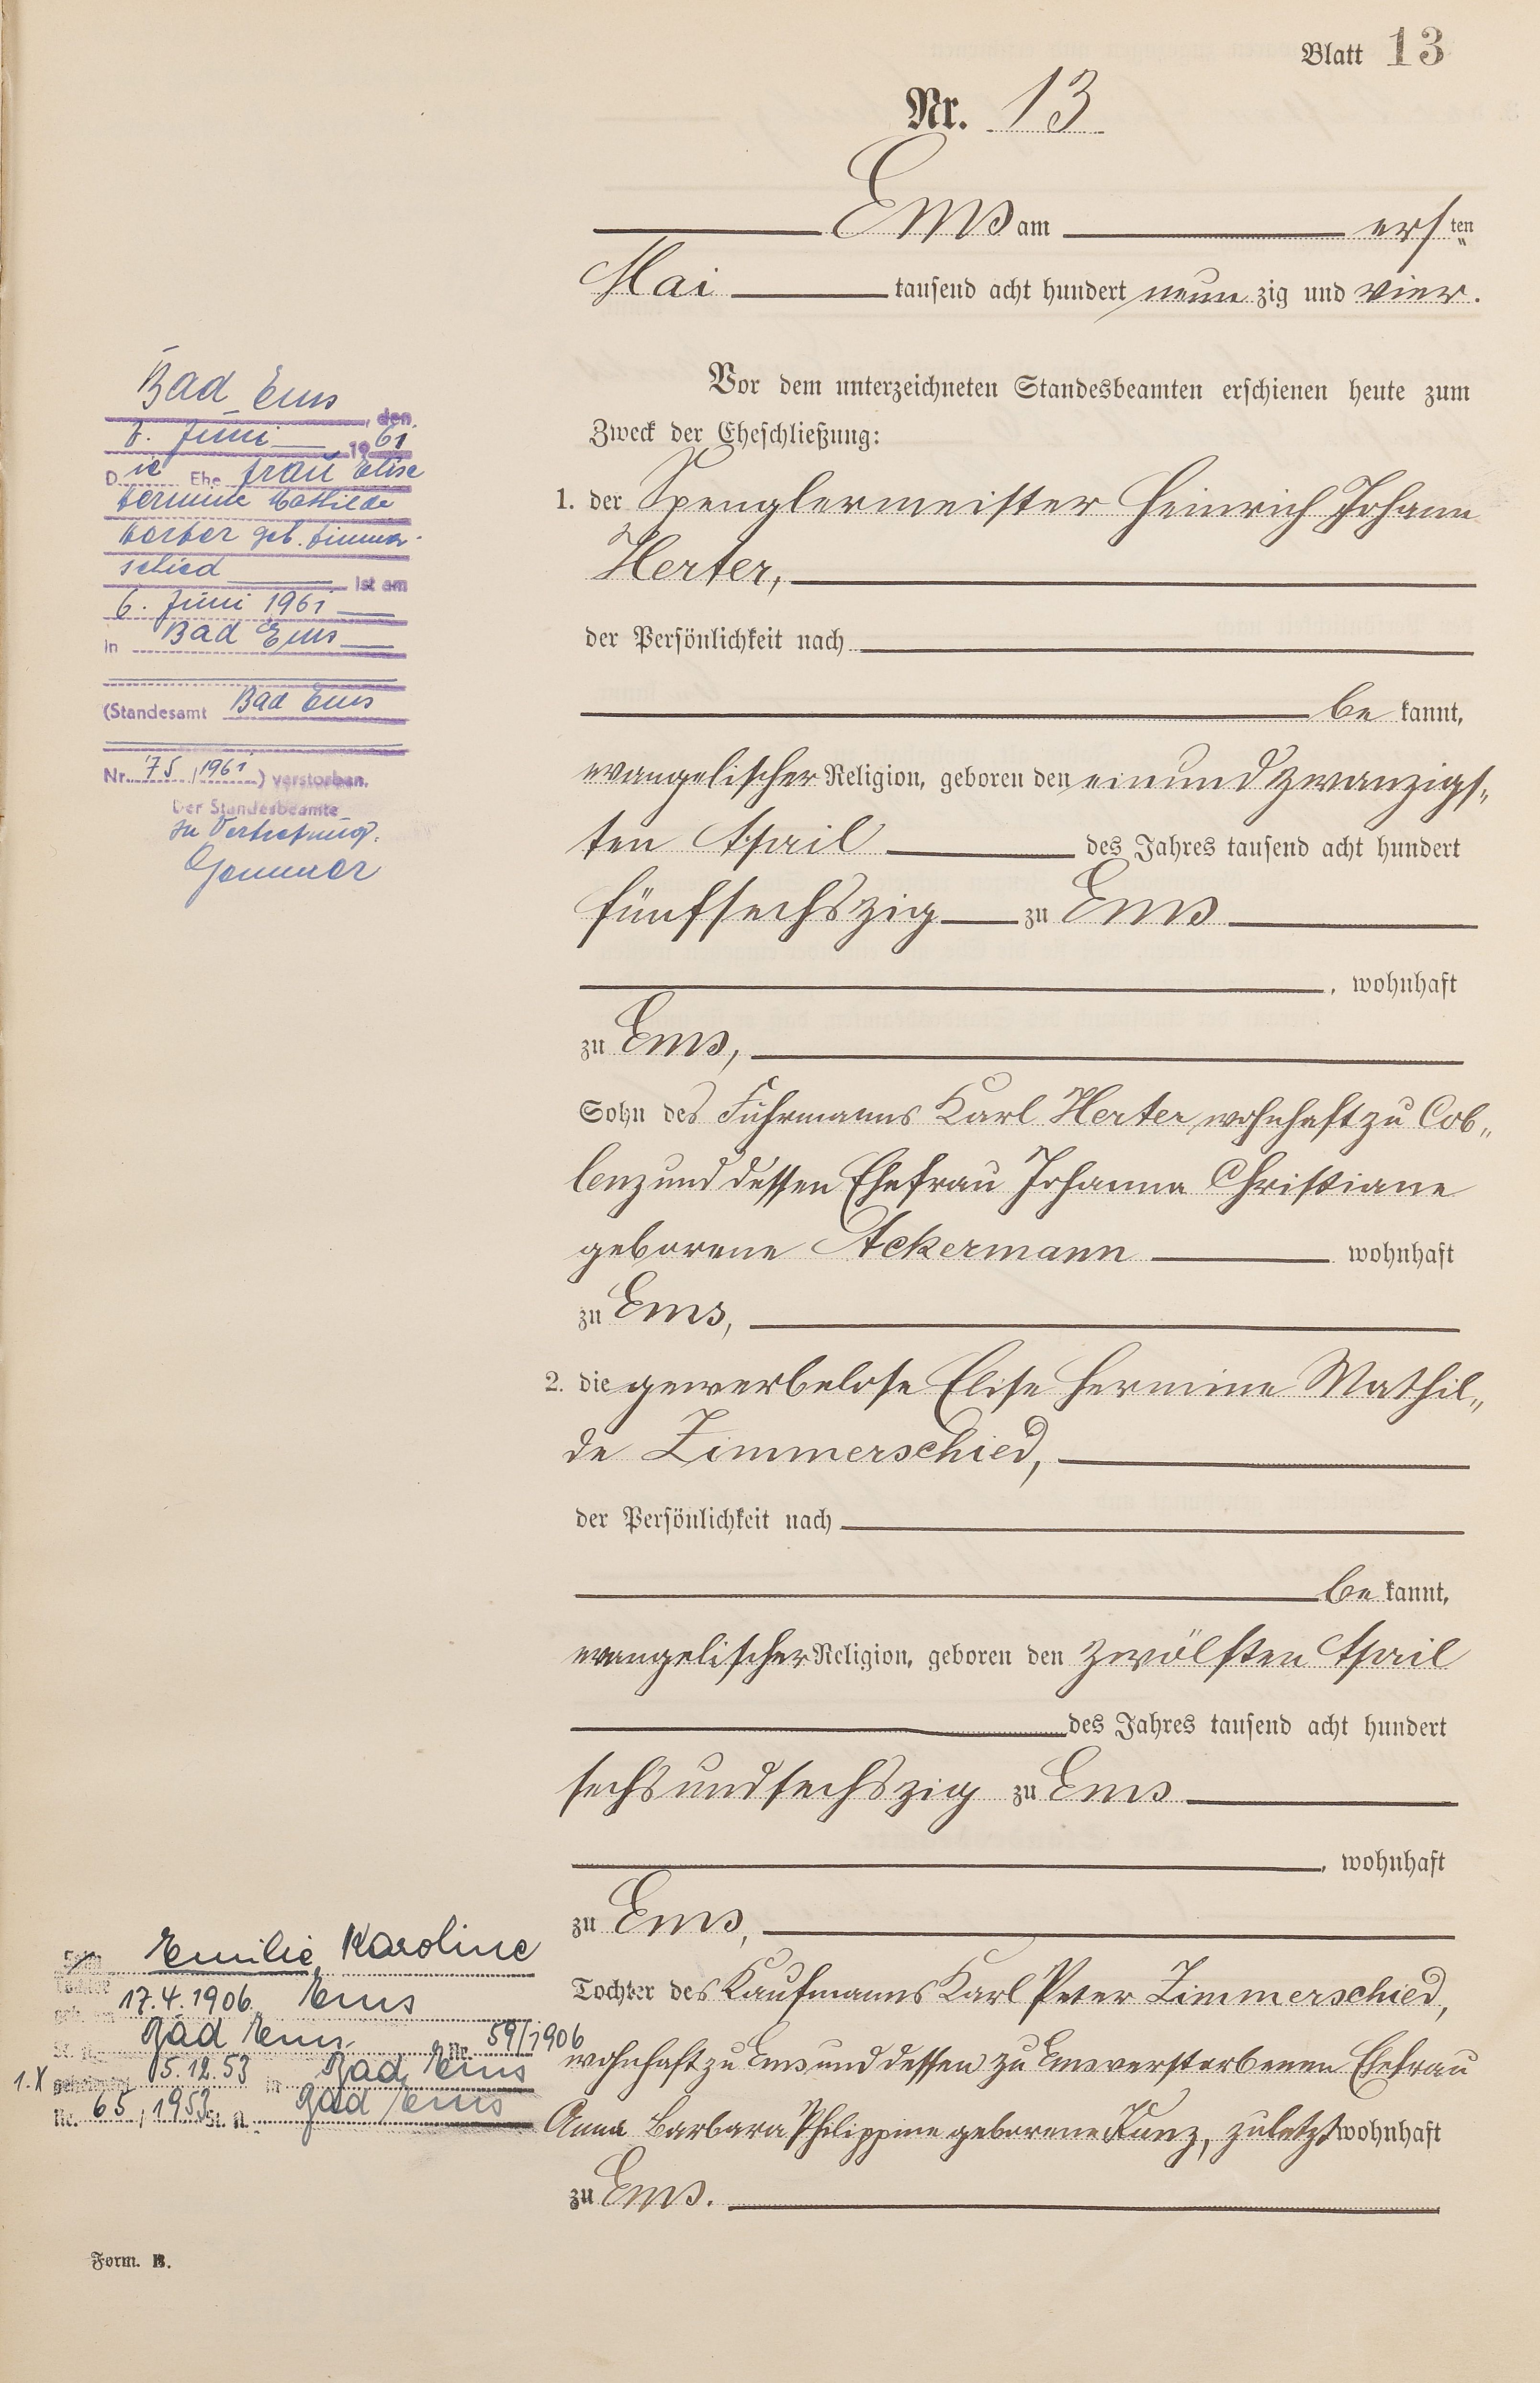 Blatt 13
Nr. 13
Ems am ersten
Mai tausend acht hundert neunzig und vier.
Vor dem unterzeichneten Standesbeamten erschienen heute zum
Zweck der Eheschließung:
1. der Spenglermeister Heinrich Johann
Herter,
der Persönlichkeit nach
bekannt,
evangelischer Religion, geboren den einundzwanzigs„
ten April des Jahres tausend acht hundert
fünfsechszig zu Ems
, wohnhaft
zu Ems,
Sohn des Fuhrmanns Karl Herter, wohnhaft zu Cob„
lenz und dessen Ehefrau Johanna Christiane
geborene Ackermann wohnhaft
zu Ems,
2. die gewerbelose Elise Hermine Mathil„
de Zimmerschied,
der Persönlichkeit nach
bekannt,
evangelischer Religion, geboren den zwölften April
des Jahres tausend acht hundert
sechsundsechszig zu Ems
, wohnhaft
zu Ems,
Tochter des Kaufmanns Karl Peter Zimmerschied,
wohnhaft zu Ems und dessen zu Ems verstorbenen Ehefrau
Anna Barbara Philippine geborene Kunz, zuletzt wohnhaft
zu Ems.
Bad Ems, den
6. Juni 1961
Die Ehefrau Elise
Hermine Mathilde
Herter geb. Zimmer-
schied ist am
6. Juni 1961
in Bad Ems
(Standesamt Bad Ems
Nr. 75/1961) verstorben.
Der Standesbeamte
In Vertretung:
Tochter Emilie Karoline
17.4.1906 Ems
Bad Ems Nr. 59/1906
1.X geheiratet 05.12.53 in Bad Ems
Nr. 65/1953 St. A. Bad Ems
Form. B.